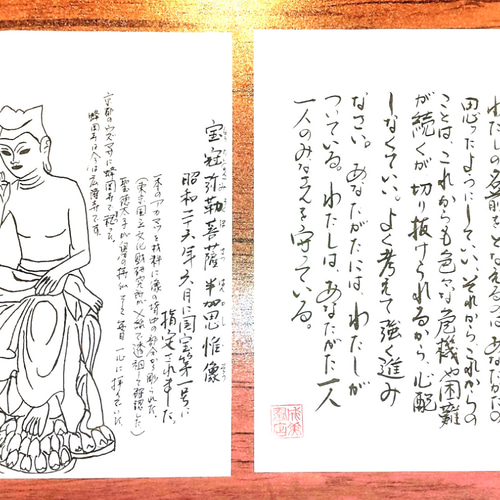 わたしの名前をとなえ あなたの
思ったようにしていい。それからこれからの
ことは、これからも色々な危機や困難
が続くが切り抜けられるから、心配
しなくていい。よく考えて強く進み
なさい。あなたがたには、わたしが
ついている。わたしは、あなたがた一人
一人のみなさまを守っている。
宝冠弥勒菩薩半加思惟像
昭和二十六年六月に国宝第一号に
指定されました。
一本のアカマツを材料に像の 部分を彫られた。
(東京国立文化財研究所がX線で透視して確認した)
聖徳太子が 毎日一心に拝んでいた。
京都のウズマサに蜂岡寺で祀った。
蜂岡寺は今は広隆寺です。